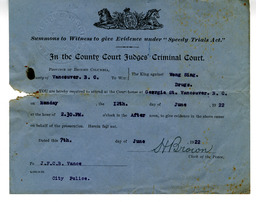 Summons to Witness to give Evidence under "Speedy Trials Act."
In the County Court Judges' Criminal Court.
Province of British Columbia,
County Vancouver, B. C. To Wit: The King against Wong Sing,
Drugs.
You are hereby required to attend the Court-house at Georgia St. Vancouver, B. C. on
Monday the 12th. day of June 1922
at the hour of 2.30.PM. o'clock in the After noon, to give evidence in the above cause
on behalf of the prosecution. Herein fail not.
Dated this 7th. day of June 1922
H Brown
Clerk of the Peace.
To J.F.C.B. Vance
City Police.